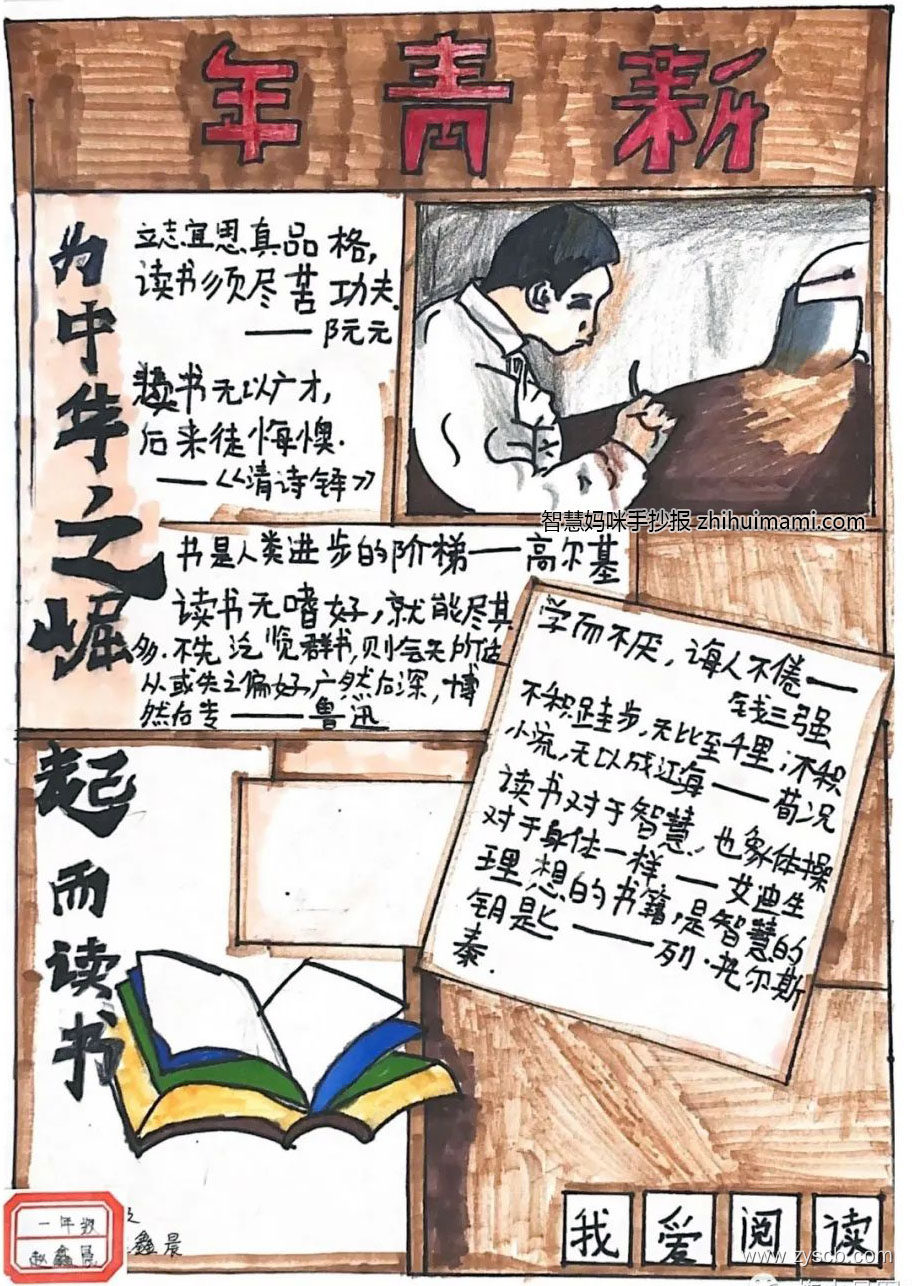 新青年
为中华之崛
起而读书
立志宜思真品格,
读书须尽苦功夫.
——阮元
读书无以广才,
后来徒悔懊.
——《清诗铎》
智慧妈咪手抄报 zhihuimami.com
书是人类进步的阶梯——高尔基
读书无嗜好,就能尽其
多.不先泛览群书,则会无所估
从或失之偏好,广然后深,博
然后专——鲁迅
学而不厌,诲人不倦——
钱三强
不积跬步,无比至千里;不积
小流,无以成江海——荀况
读书对于智慧,也象体操
对于身体一样——艾迪生
理想的书籍,是智慧的
钥匙——列·托尔斯
泰.
一年级
赵鑫晨
鑫晨
我爱阅读
www.zyscb.com